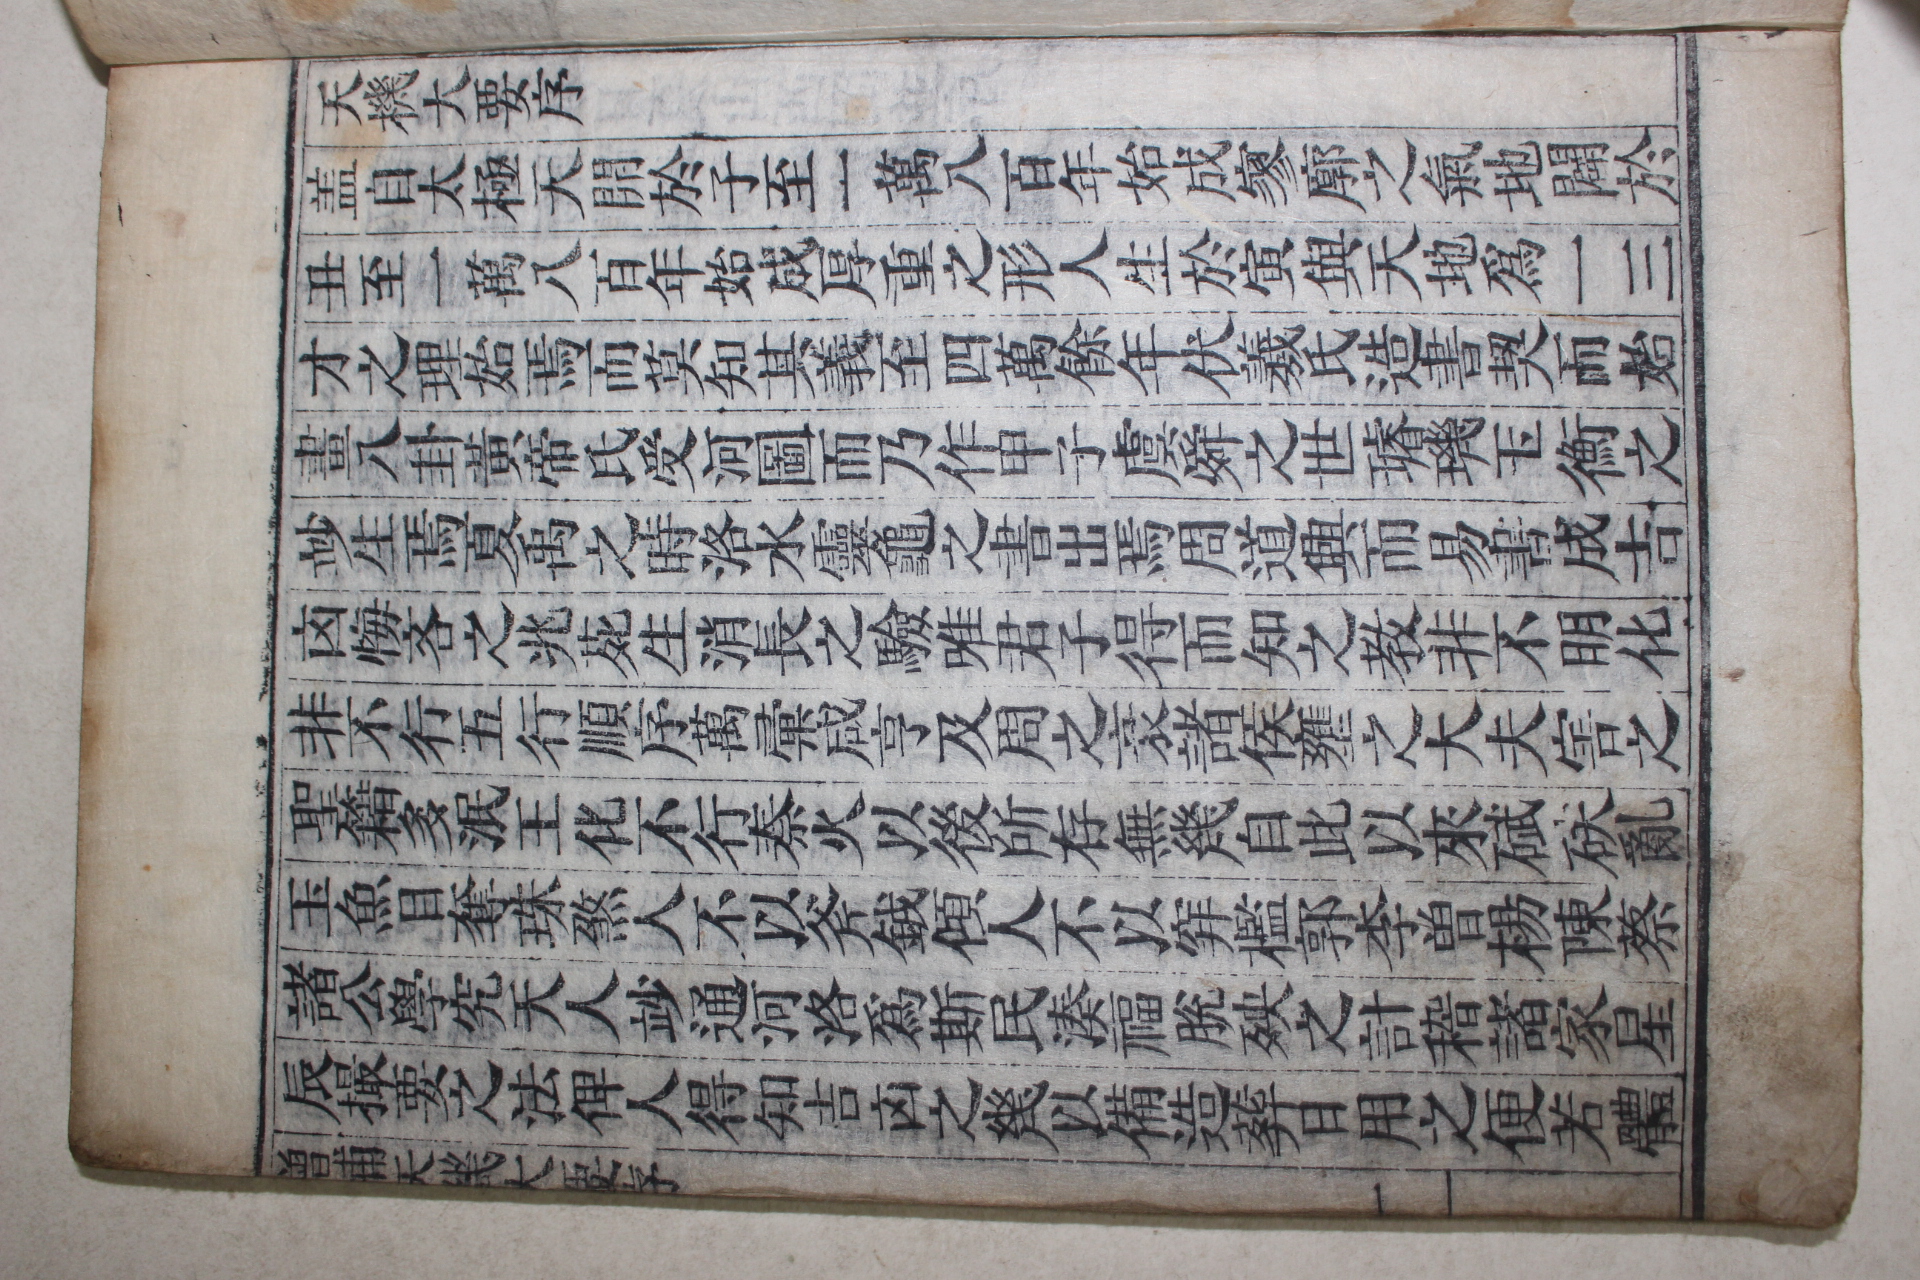 天機大要序
盖自太極天開於子至一萬八百年始成寥廓之氣地闢於
丑至一萬八百年始成厚重之形人生於寅與天地爲一三
才之理始焉而莫知其義至四萬餘年伏羲氏造書契而始
畫八卦黃帝氏受河圖而乃作甲子虞舜之世璿璣玉衡之
玅生焉夏禹之時洛水靈龜之書出焉周道興而易書成吉
凶悔吝之兆死生消長之驗唯君子得而知之教非不明化
非不行五行順序萬彙咸亨及周之衰諸侯雍之大夫害之
聖籍多泯王化不行秦火以後所存無幾自此以來碔砆亂
玉魚目奪珠煞人不以斧鉞傾人不以穽檻郭李曾楊陳蔡
諸公學究天人玅通河洛爲斯民湊福脫殃之計稽諸家星
辰撮要之法俾人得知吉凶之幾以備造葬日用之便若體
增補天機大要序
一